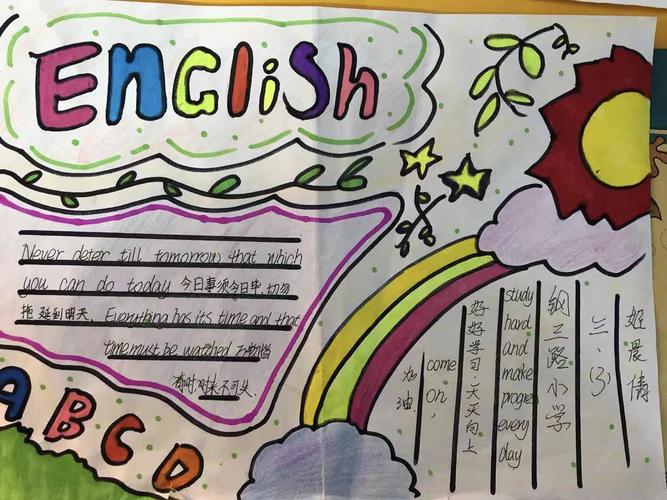 ENGLiSh
Never deter till tomorrow that which
you can do today 今日事须今日毕,切勿
拖延到明天。Everything has its time and that
time must be watched 万物皆
有时时来不可失.
A B C D
姬晨倩
三、(3)
纲二路小学
study
hard
and
make
progres
every
day
好好学习、天天向上
come
on,
加油.